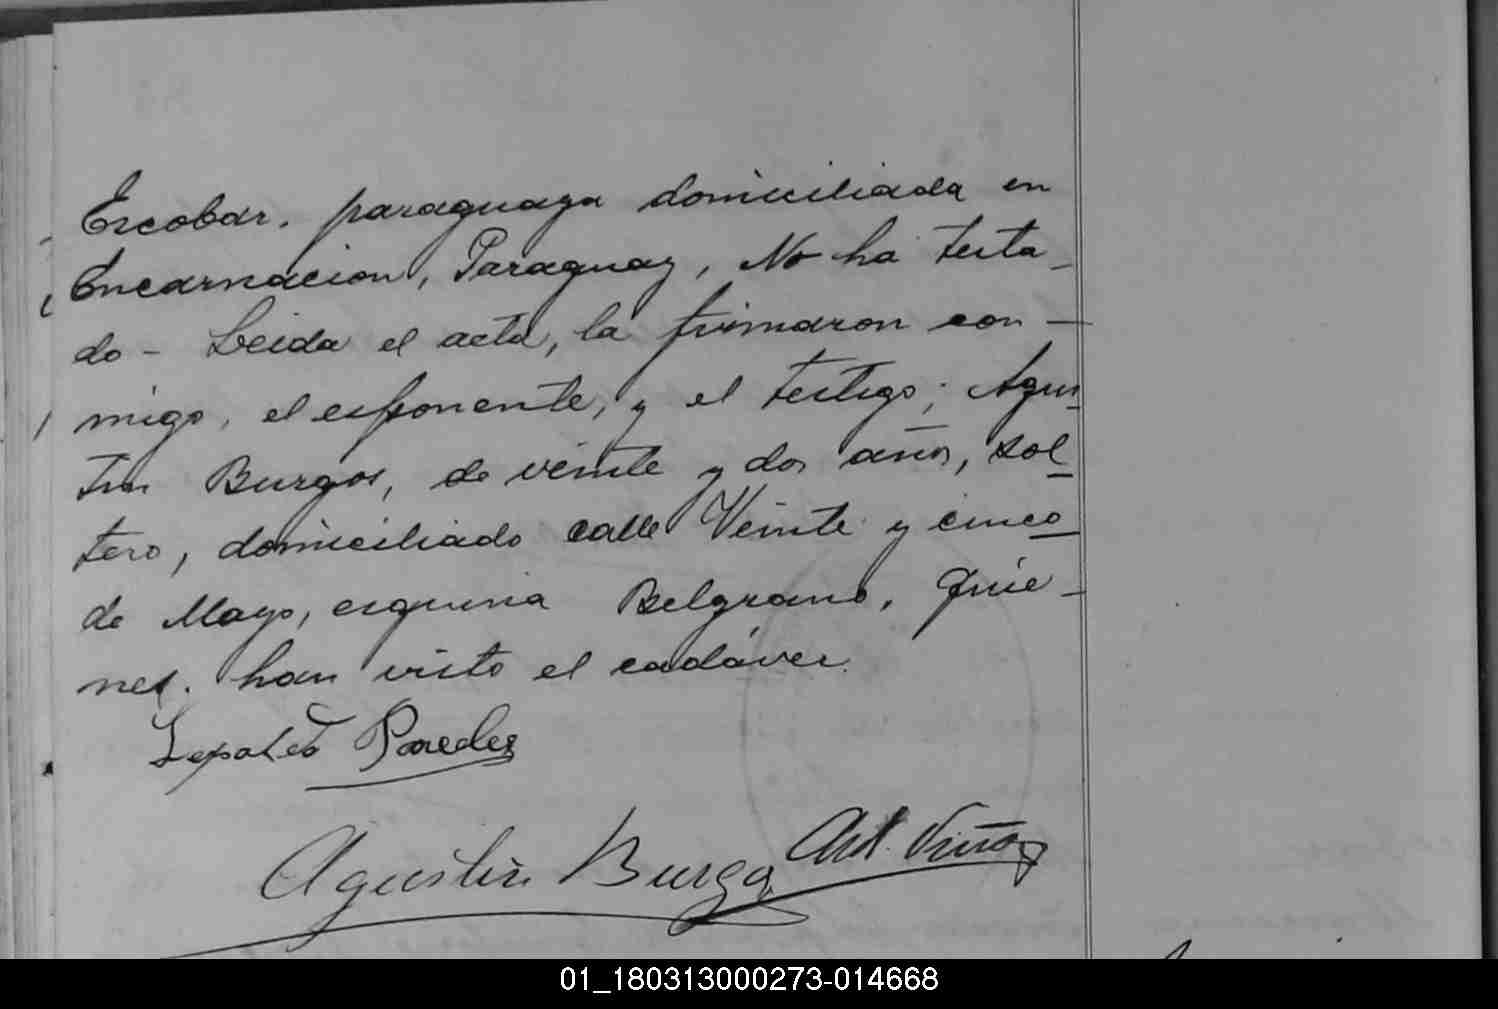 Escobar. paraguaya domiciliada en
Encarnacion, Paraguay, No ha testa-
do - Leida el acta, la firmaron con-
migo, el exponente, y el testigo; Agus-
tin Burgos, de veinte y dos años, sol-
tero, domiciliado calle Veinte y cinco
de Mayo, esquina Belgrano, quie-
nes. han visto el cadáver.
Paredes
Agustin Burgo
Art. Viña
01_180313000273-014668